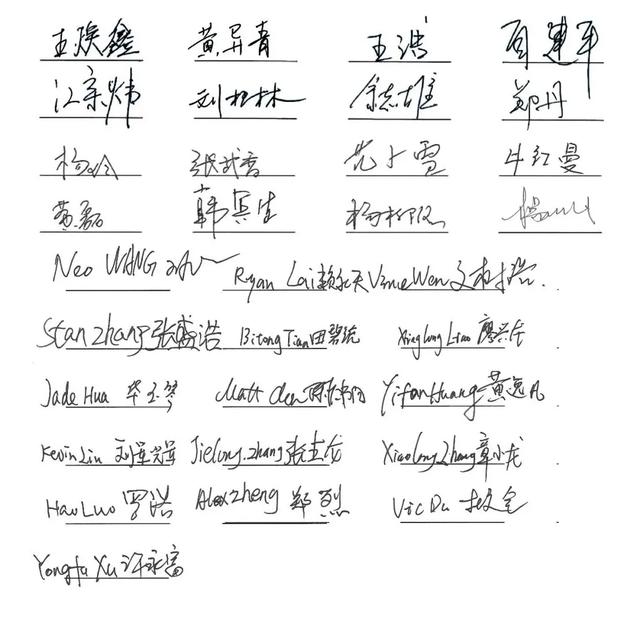 王焕鑫 黄异青 王浩 建军
江宗炜 刘松林 余志雄 郑丹
杨 张武香 范小雪 牛红曼
黄磊 韩冥生 杨柳
Neo WANG Ryan Lai 赖 天 Vince Wen 文
Stan zhang 张盛浩 Bitong Tian 田碧统 Xinglong Liao 廖兴
Jade Hua 华玉琴 Matt Chen 陈 Yifan Huang 黄逸凡
Kevin Liu 刘 Jielong.zhang 张杰龙 Xiaolong Zhang 章小龙
Hao Luo 罗浩 Alex zheng 郑烈 Vic Du
Yongfu Xu 许永富